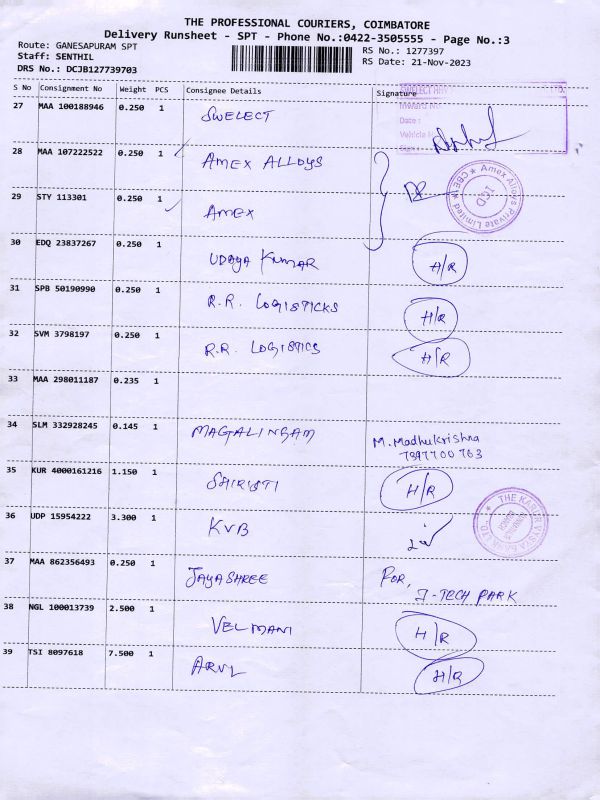 THE PROFESSIONAL COURIERS, COIMBATORE
Delivery Runsheet - SPT - Phone No.:0422-3505555 - Page No.:3
Route: GANESAPURAM SPT
Staff: SENTHIL
DRS No.: DCJB127739703
RS No.: 1277397
RS Date: 21-Nov-2023
S No Consignment No Weight PCS Consignee Details Signature
27 MAA 100188946 0.250 1 SWELECT
Inward No
Date :
Vehicle
28 MAA 107222522 0.250 1 AMEX ALLOYS
Amex Alloys Private Limited ★ CBE ★
29 STY 113301 0.250 1 AMEX
30 EDQ 23837267 0.250 1 UDAYA KUMAR H/R
31 SPB 50190990 0.250 1 R.R. LOGISTICKS H/R
32 SVM 3798197 0.250 1 R.R. LOGISTICS H/R
33 MAA 298011187 0.235 1
34 SLM 332928245 0.145 1 MAGTALINGAM M. Madhukrishna
7397700763
35 KUR 4000161216 1.150 1 SHIRISTI H/R
36 UDP 15954222 3.300 1 KVB
THE KARUR VYSYA BANK LTD.
37 MAA 862356493 0.250 1 JAYASHREE FOR,
I-TECH PARK
38 NGL 100013739 2.500 1 VELMANI H/R
39 TSI 8097618 7.500 1 ARVL H/R